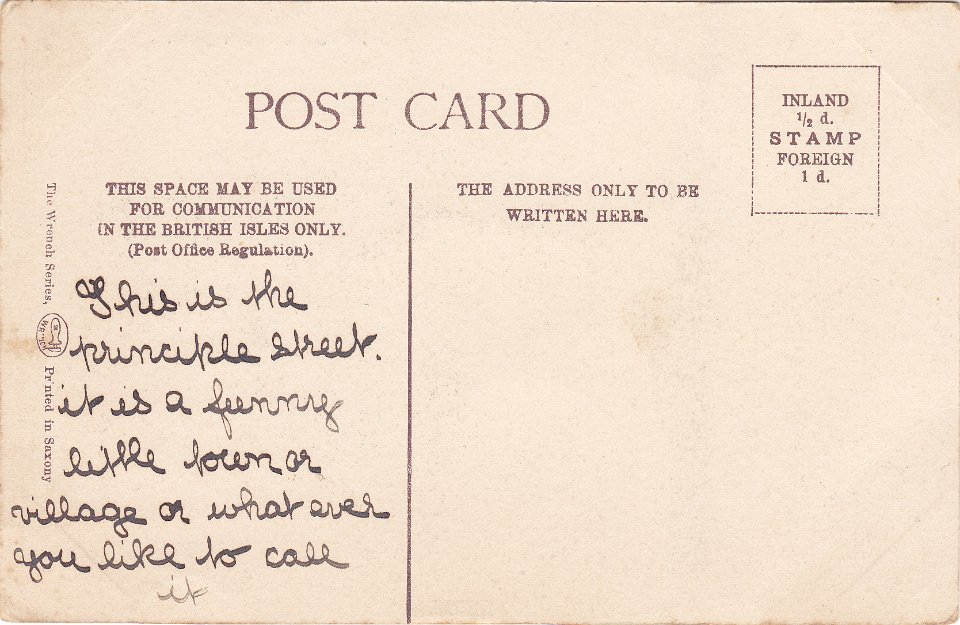 POST CARD
INLAND
½ d.
STAMP
FOREIGN
1 d.
THIS SPACE MAY BE USED
FOR COMMUNICATION
IN THE BRITISH ISLES ONLY.
(Post Office Regulation).
THE ADDRESS ONLY TO BE
WRITTEN HERE.
The Wrench Series,
WRENCH
Printed in Saxony
This is the
principle street.
it is a funny
little town or
village or what ever
you like to call
it